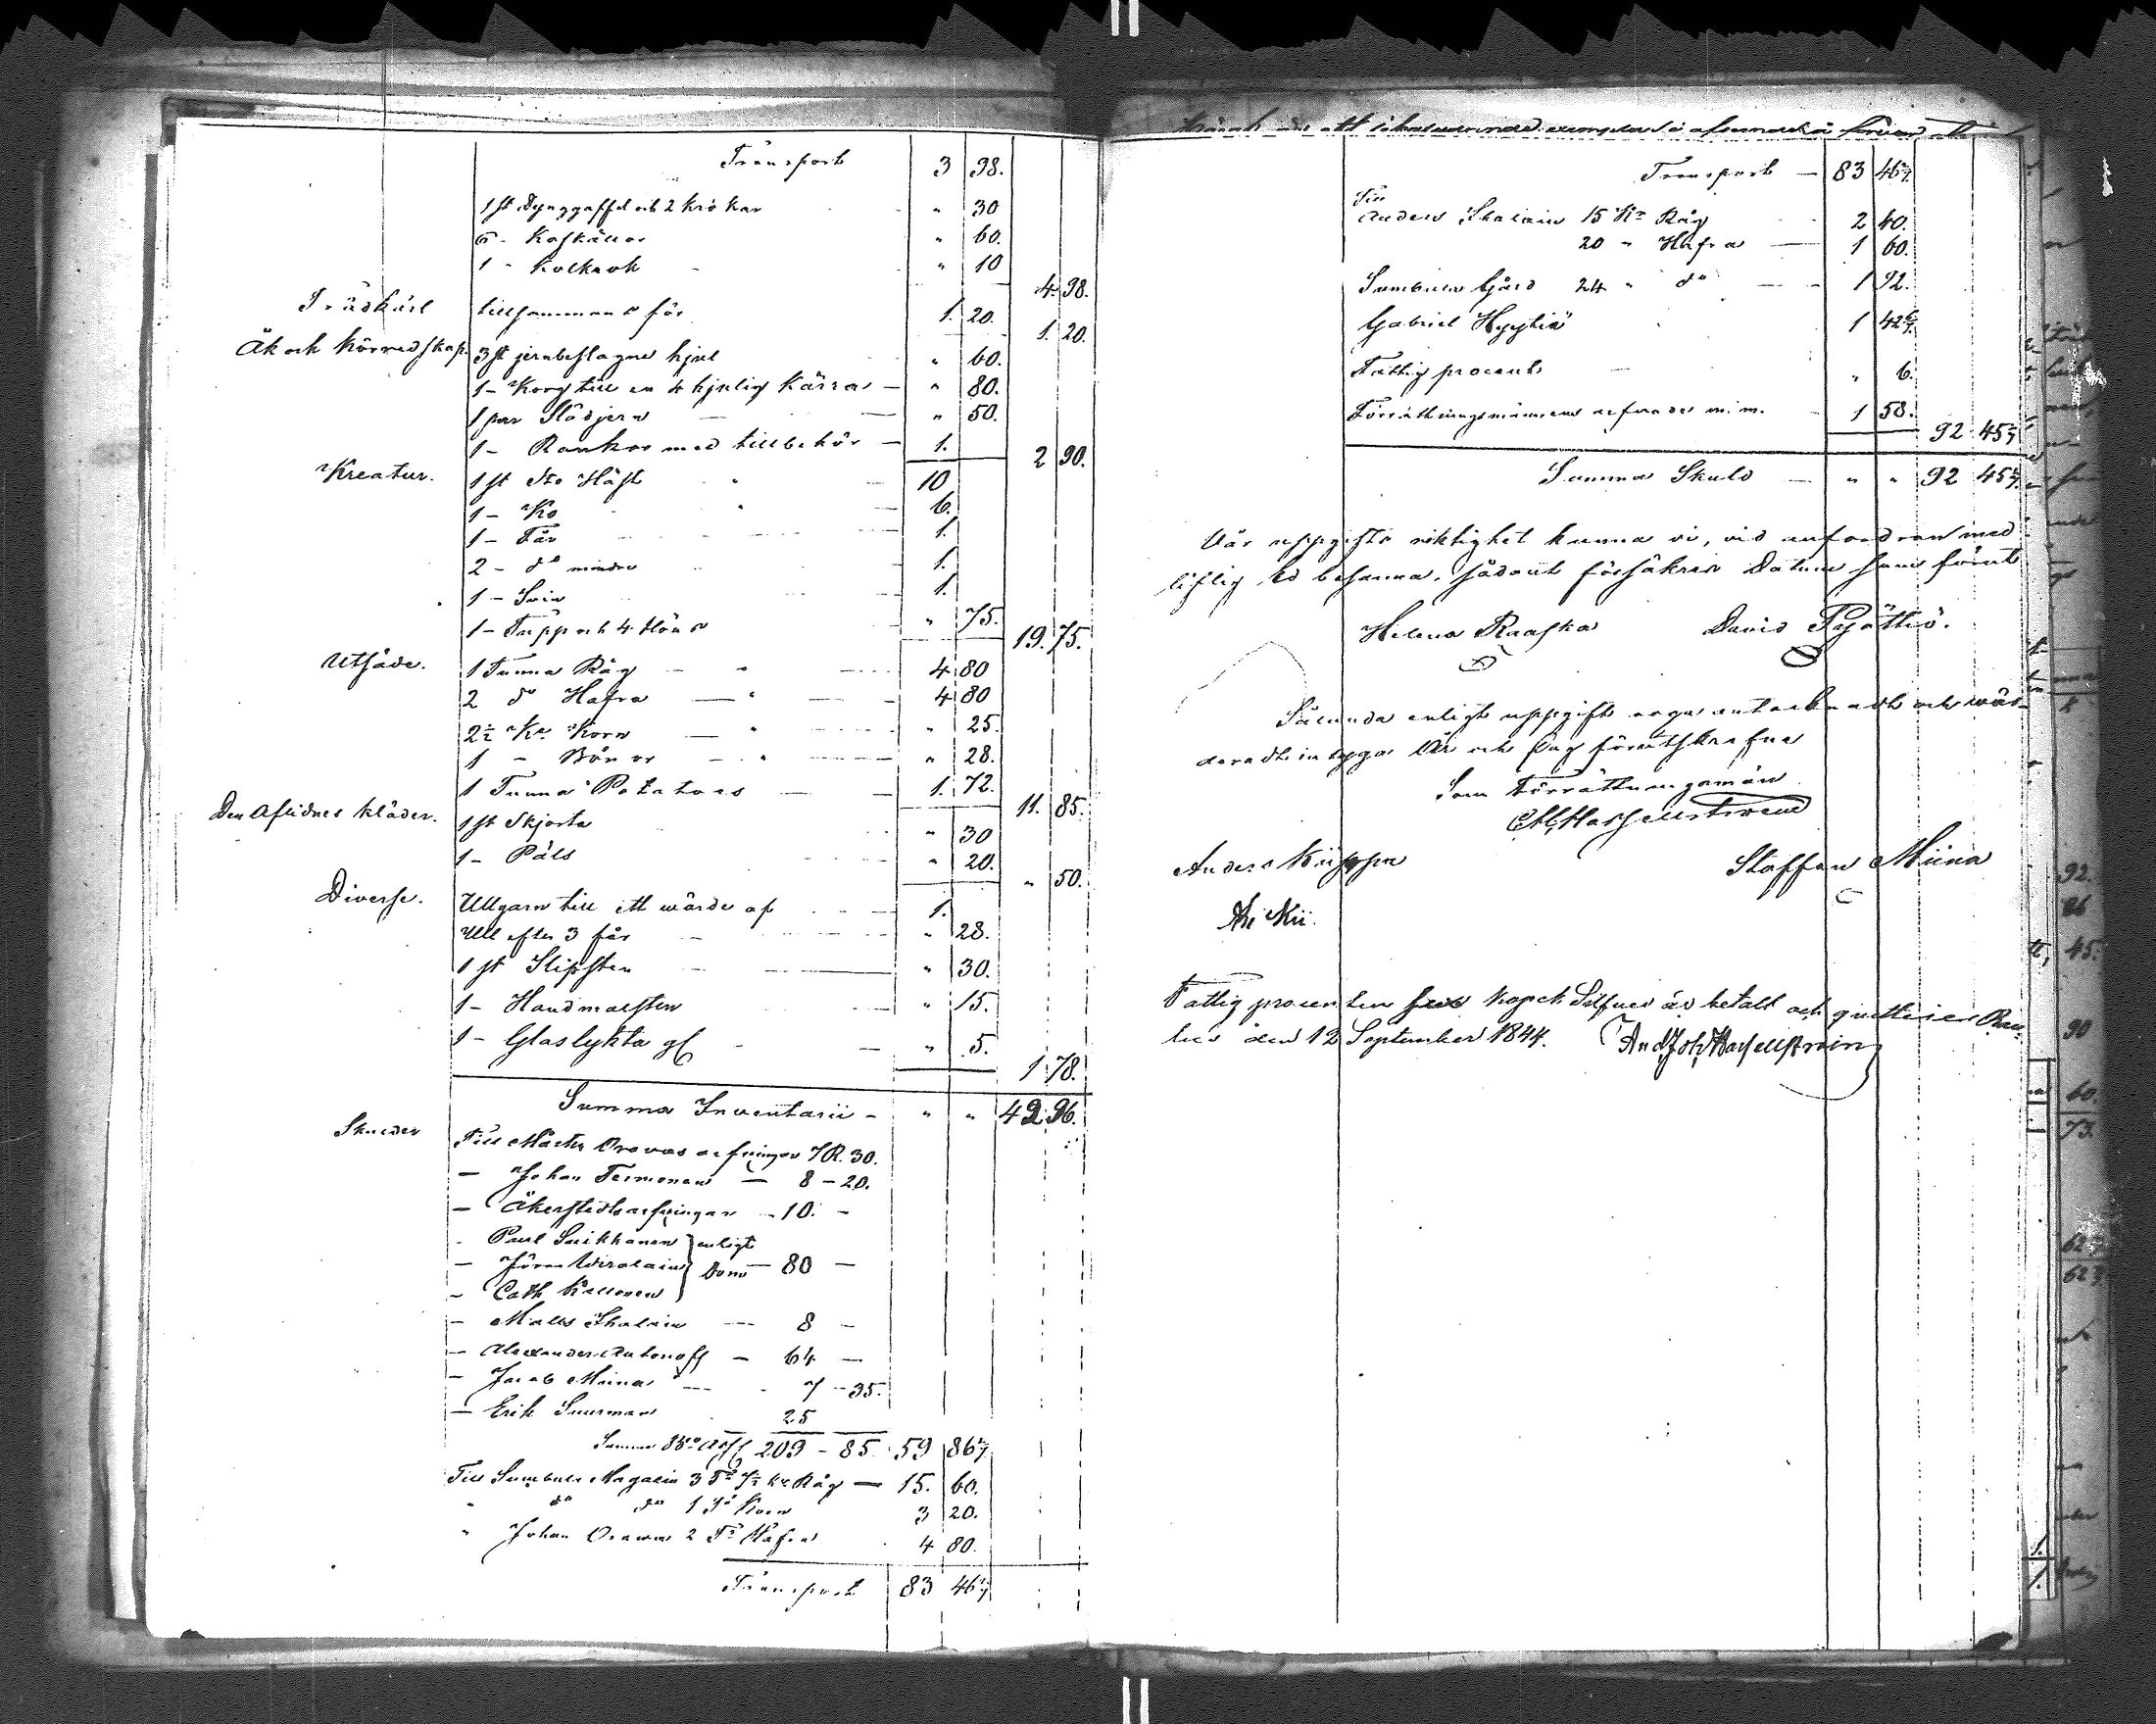 Transport 3 98.
1 st Dynggaffel och 2 krokar " 30
6 - Kofkällor " 60.
1 - Kolkrok " 10
4. 98.
Trädkärl tillsammans för 1. 20.
1. 20.
Åk och körredskap. 3 st jernbeslagne hjul " 60.
1 - Korg till en 4 hjulig Kärra " 80.
1 par Slädjern " 50.
1 - Rankor med tillbehör 1.
2 90.
Kreatur. 1 st Sto Häst 10
1 - Ko 6.
1 - Får 1.
2 - do mindre 1.
1 - Svin 1.
1 - Tupp och 4 Höns " 75.
19. 75.
Utsäde. 1 Tunna Råg 4 80
2 do Hafra 4 80
2½ Kr Korn " 25.
1 - Bönor " 28.
1 Tunna Potatoes 1. 72.
11. 85.
Den Aflidnes kläder. 1 st Skjorta " 30
1 - Päls " 20.
" 50.
Diverse. Ullgarn till ett wärde af 1.
Ull efter 3 får " 28.
1 st Slipsten " 30.
1 - Handmalsten " 15.
1 - Glaslykta gl " 5.
1 78.
Summa Inventarii " " 42 96.
Skulder Till Mårten Oravas arfvingar 7 R. 30.
— Johan Termonen — 8 - 20.
— Åkerstedts arfvingar - 10. -
- Paul Suikkanen } enligt
— Jöran Wirolain } Dom — 80 —
— Cath Källonen }
— Matts Ihalain 8 -
— Alexander Antonoff — 64 —
— Jacob Miina 7 - 35.
— Erik Suurman 25
Summa Bko Ass 209 - 85. 59 86 4/7
Till Sumbula Magasin 3 Tr ½ kr Råg — 15. 60.
" do do 1 Tr Korn 3 20.
" Johan Orawa 2 Tr Hafra 4 80.
Transport 83 46 4/7
Transport — 83 46 4/7.
Till
Anders Ihalain 15 Kr Råg 2 40.
20 " Hafra 1 60.
Sumbula Gård 24 " do 1 92.
Gabriel Hyytiä 1 42 6/7.
Fattig procent " 6.
Förrättningsmännens arfvoder m. m. 1 58.
92 45 3/7
Summa Skuld " " 92 45 3/7.
Vår uppgifts riktighet kunna vi, vid anfordran med
liflig Ed besanna, sådant försäkras Datum som förut
Helena Raaska David Pyöttiö.
Sålunda enligt uppgift vara antecknadt och wär-
deradt intyga År och Dag förutskrefne
Som Förrättningsmän
Anders Kiippa Staffan Miina
Fattig procenten sex Kopek Silfver är betalt och quitteras
den 12 September 1844. And Joh Hasselström